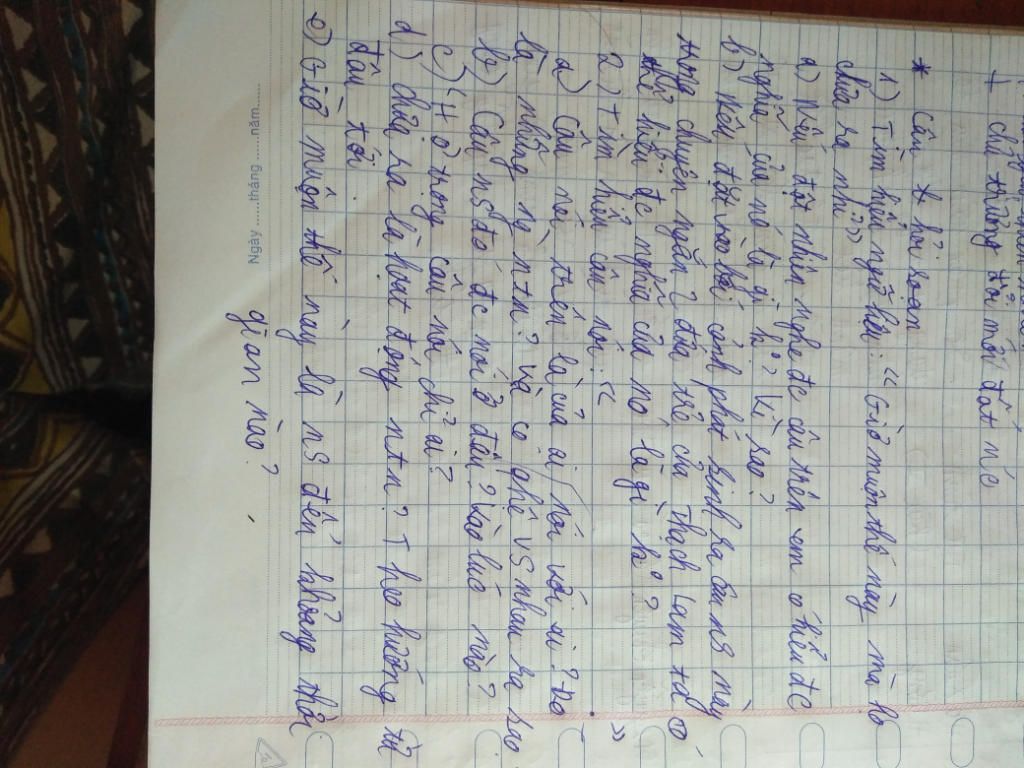 + chủ trương đổi mới đất nc
* Câu hỏi soạn
1) Tìm hiểu ngữ liệu: "Giờ muộn thế này mà họ
chưa ra nhỉ?"
a) Nếu đột nhiên nghe đc câu trên em có hiểu đc
nghĩa của nó là gì k? Vì sao?
b) Nếu đặt vào bối cảnh phát sinh ra câu ns này
trong chuyện ngắn 2 đứa trẻ của Thạch Lam ta có
thể hiểu đc nghĩa của nó là gì k?
2) Tìm hiểu câu nói: " "
a) Câu nói trên là của ai/nói với ai? Đó
là những ng ntn? Và có qhệ vs nhau ra sao
b) Câu ns đó đc nói ở đâu? Vào lúc nào?
c) "Họ" trong câu nói chỉ ai?
d) Chưa ra là hoạt động ntn? Theo hướng từ
đâu tới.
e) Giờ muộn thế này là ns đến khoảng thời
gian nào?
Ngày ......tháng ......năm......